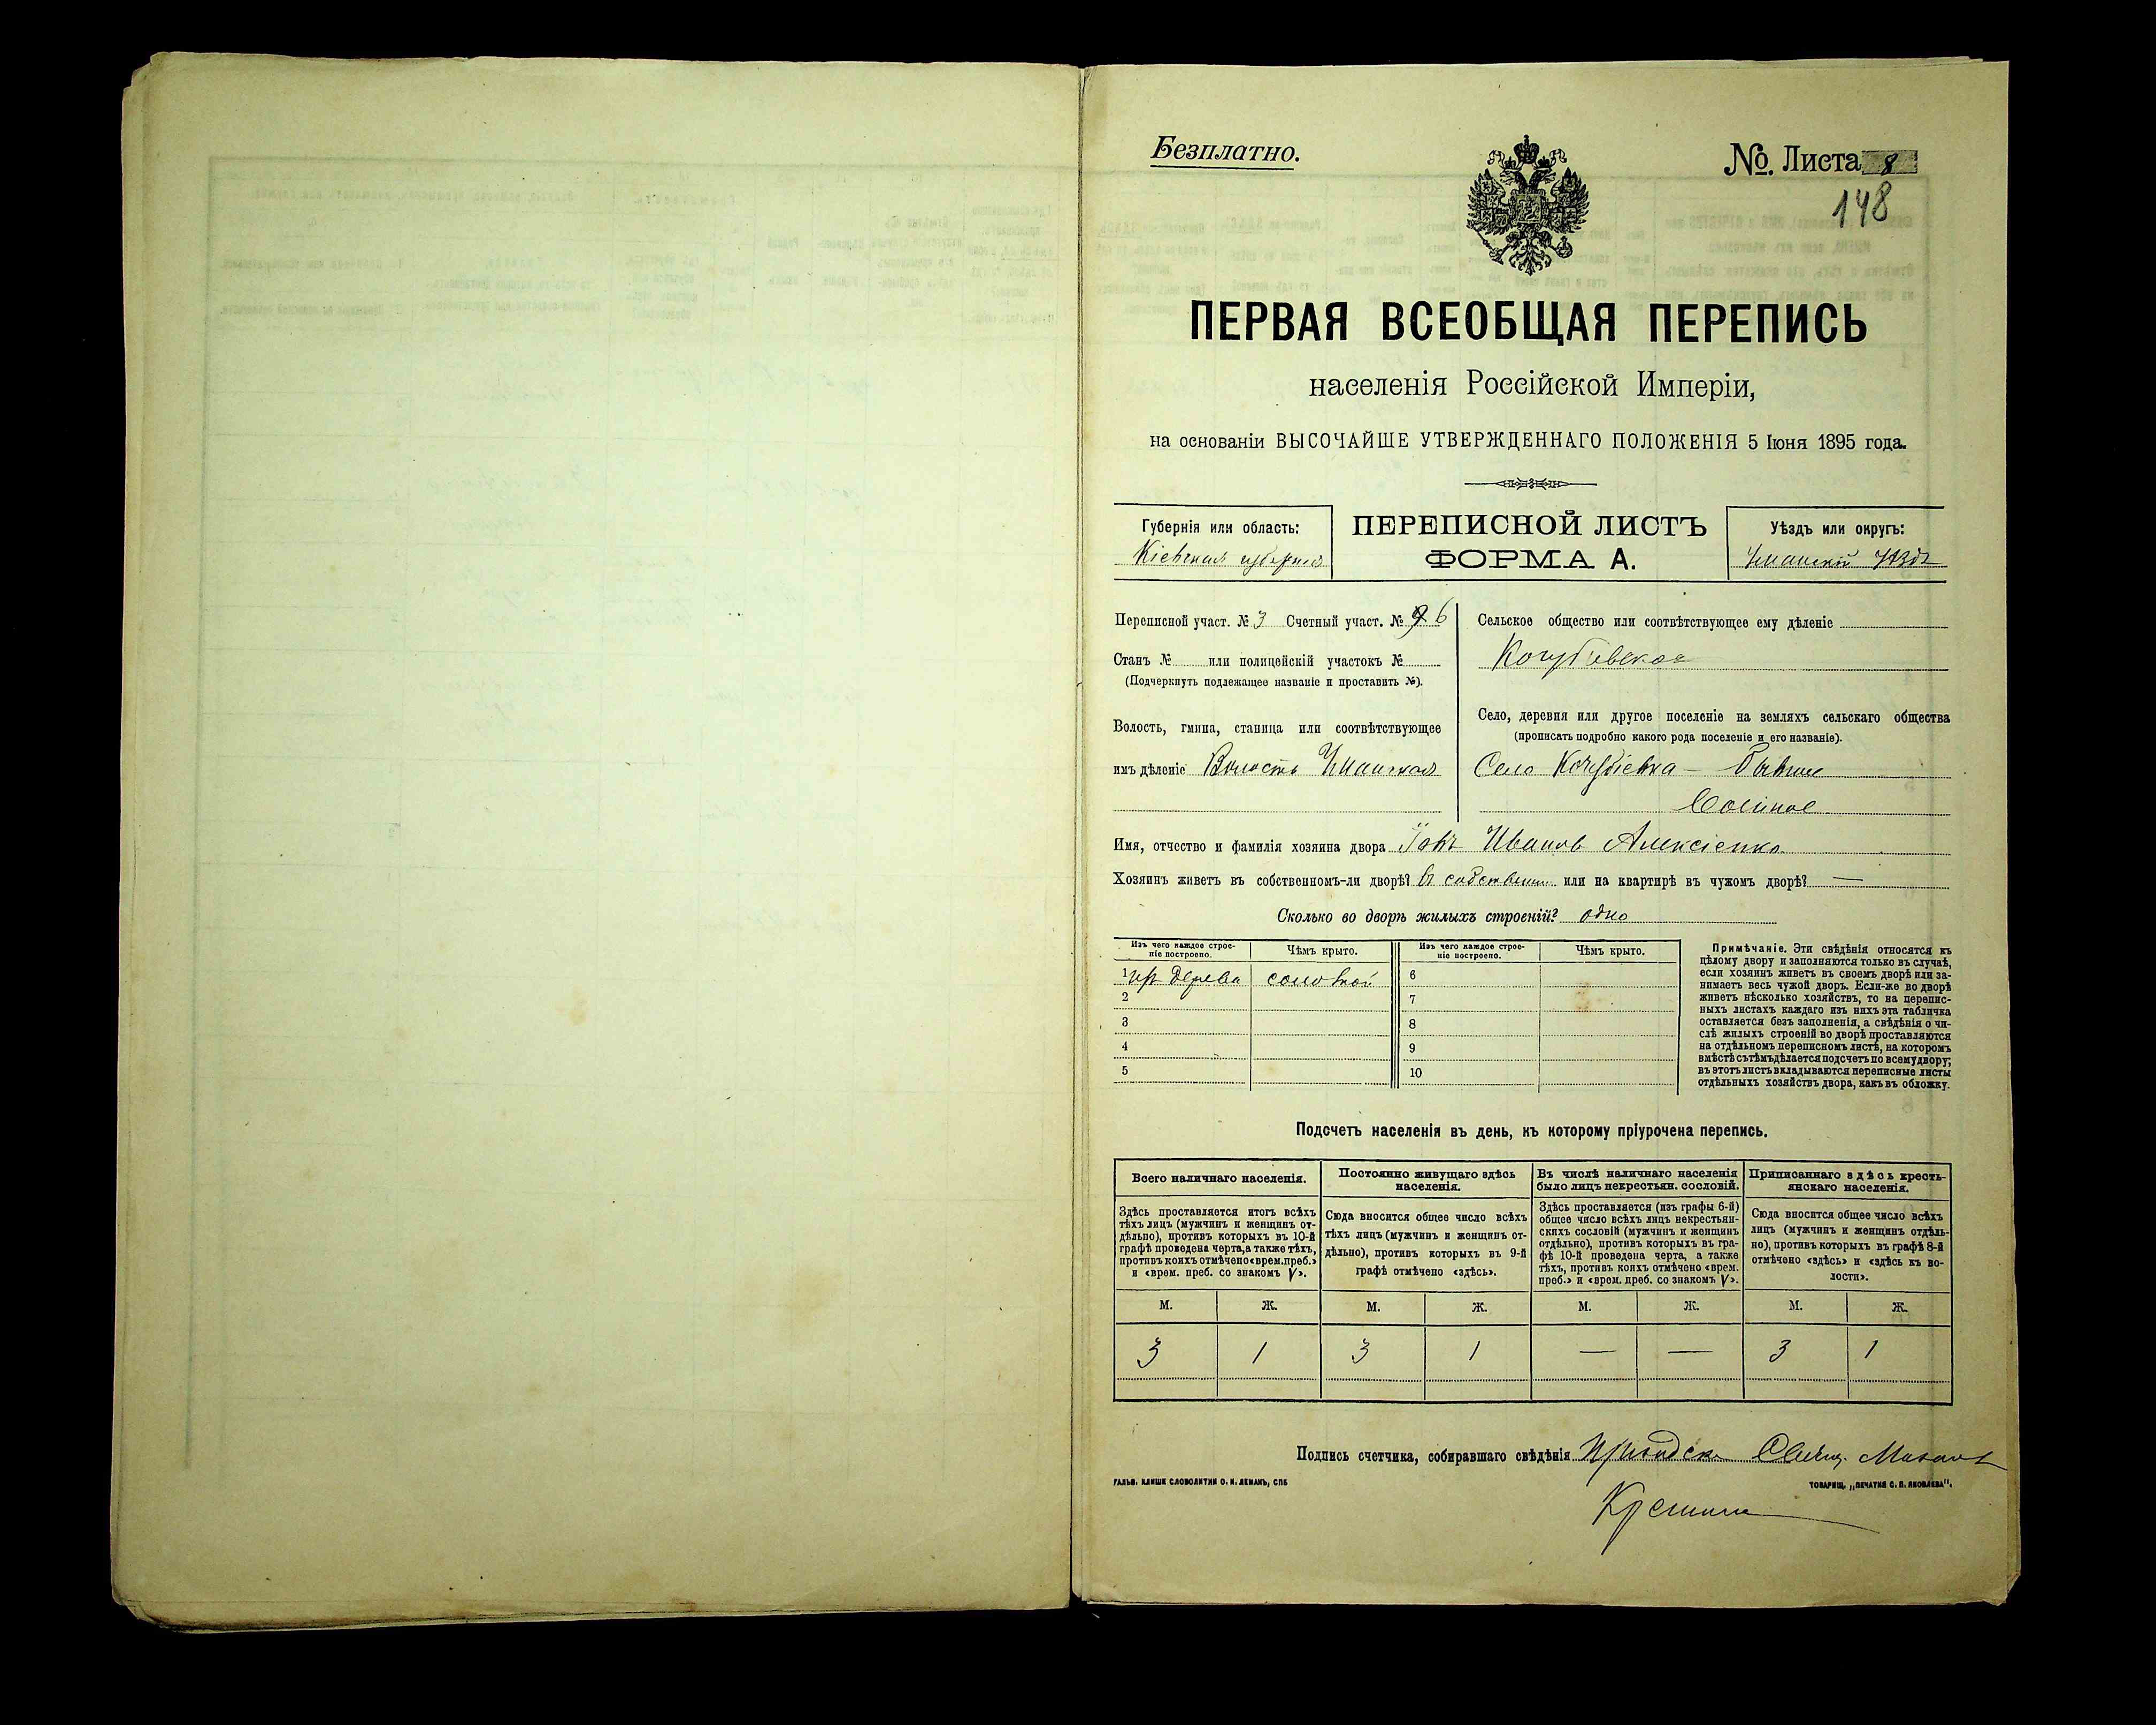 Безплатно.
№. Листа 8
148
ПЕРВАЯ ВСЕОБЩАЯ ПЕРЕПИСЬ
населенія Россійской Имперіи,
на основаніи ВЫСОЧАЙШЕ УТВЕРЖДЕННАГО ПОЛОЖЕНІЯ 5 Іюня 1895 года.
Губернія или область:
Кіевская губернія
ПЕРЕПИСНОЙ ЛИСТЪ
ФОРМА А.
Уѣздъ или округъ:
Уманскій Уѣздъ
Переписной участ. № 3 Счетный участ. № 6
Станъ № или полицейскій участокъ №
(Подчеркнуть подлежащее названіе и проставить №).
Волость, гмина, станица или соотвѣтствующее
имъ дѣленіе Волость Уманская
Сельское общество или соотвѣтствующее ему дѣленіе
Кочубіевское
Село, деревня или другое поселеніе на земляхъ сельскаго общества
(прописать подробно какого рода поселеніе и его названіе).
Село Кочубіевка - бывшее
Имя, отчество и фамилія хозяина двора Іовъ Иванов Алексіенко
Хозяинъ живетъ въ собственномъ-ли дворѣ? въ собствен. или на квартирѣ въ чужомъ дворѣ? —
Сколько во дворѣ жилыхъ строеній? одно
Изъ чего каждое строе-
ніе построено.
Чѣмъ крыто.
Изъ чего каждое строе-
ніе построено.
Чѣмъ крыто.
1 изъ дерева соломой
6
2
7
3
8
4
9
5
10
Примѣчаніе. Эти свѣдѣнія относятся къ
цѣлому двору и заполняются только въ случаѣ,
если хозяинъ живетъ въ своемъ дворѣ или за-
нимаетъ весь чужой дворъ. Если-же во дворѣ
живетъ нѣсколько хозяйствъ, то на перепис-
ныхъ листахъ каждаго изъ нихъ эта табличка
оставляется безъ заполненія, а свѣдѣнія о чи-
слѣ жилыхъ строеній во дворѣ проставляются
на отдѣльномъ переписномъ листѣ, на которомъ
вмѣстѣ съ тѣмъ дѣлается подсчетъ по всему двору;
въ этотъ листъ вкладываются переписные листы
отдѣльныхъ хозяйствъ двора, какъ въ обложку.
Подсчетъ населенія въ день, къ которому пріурочена перепись.
Всего наличнаго населенія.
Здѣсь проставляется итогъ всѣхъ
тѣхъ лицъ (мужчинъ и женщинъ от-
дѣльно), противъ которыхъ въ 10-й
графѣ проведена черта, а также тѣхъ,
противъ коихъ отмѣчено «врем. преб.»
и «врем. преб. со знакомъ V».
Постоянно живущаго здѣсь
населенія.
Сюда вносится общее число всѣхъ
тѣхъ лицъ (мужчинъ и женщинъ от-
дѣльно), противъ которыхъ въ 9-й
графѣ отмѣчено «здѣсь».
Въ числѣ наличнаго населенія
было лицъ некрестьян. сословій.
Здѣсь проставляется (изъ графы 6-й)
общее число всѣхъ лицъ некрестьян-
скихъ сословій (мужчинъ и женщинъ
отдѣльно), противъ которыхъ въ гра-
фѣ 10-й проведена черта, а также
тѣхъ, противъ коихъ отмѣчено «врем.
преб.» и «врем. преб. со знакомъ V».
Приписаннаго здѣсь кресть-
янскаго населенія.
Сюда вносится общее число всѣхъ
лицъ (мужчинъ и женщинъ отдѣль-
но), противъ которыхъ въ графѣ 8-й
отмѣчено «здѣсь» и «здѣсь къ во-
лости».
М. Ж. М. Ж. М. Ж. М. Ж.
3 1 3 1 — — 3 1
Подпись счетчика, собиравшаго свѣдѣнія
ГАЛЬВ. КЛИШЕ СЛОВОЛИТНИ О. И. ЛЕМАНЪ, СПБ
ТОВАРИЩ. „ПЕЧАТНЯ С. П. ЯКОВЛЕВА".